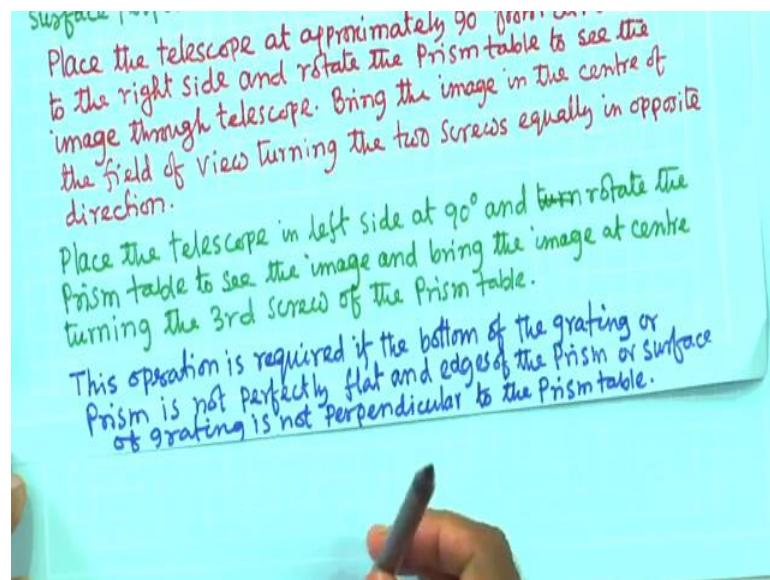 surface
Place the telescope at approximately 90 from
to the right side and rotate the Prism table to see the
image through telescope. Bring the image in the centre of
the field of view turning the two screws equally in opposite
direction.
Place the telescope in left side at 90° and turn rotate the
Prism table to see the image and bring the image at centre
turning the 3rd screw of the Prism table.
This opration is required if the bottom of the grating or
Prism is not perfectly flat and edges of the Prism or surface
of grating is not perpendicular to the Prism table.